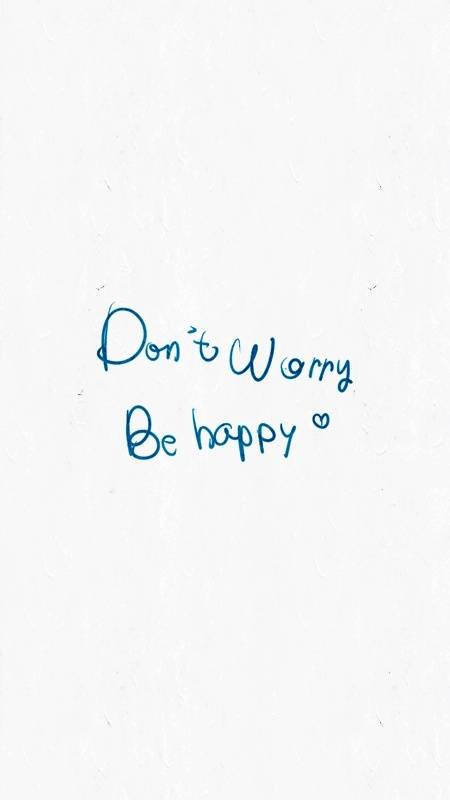 Don't Worry
Be happy ♡